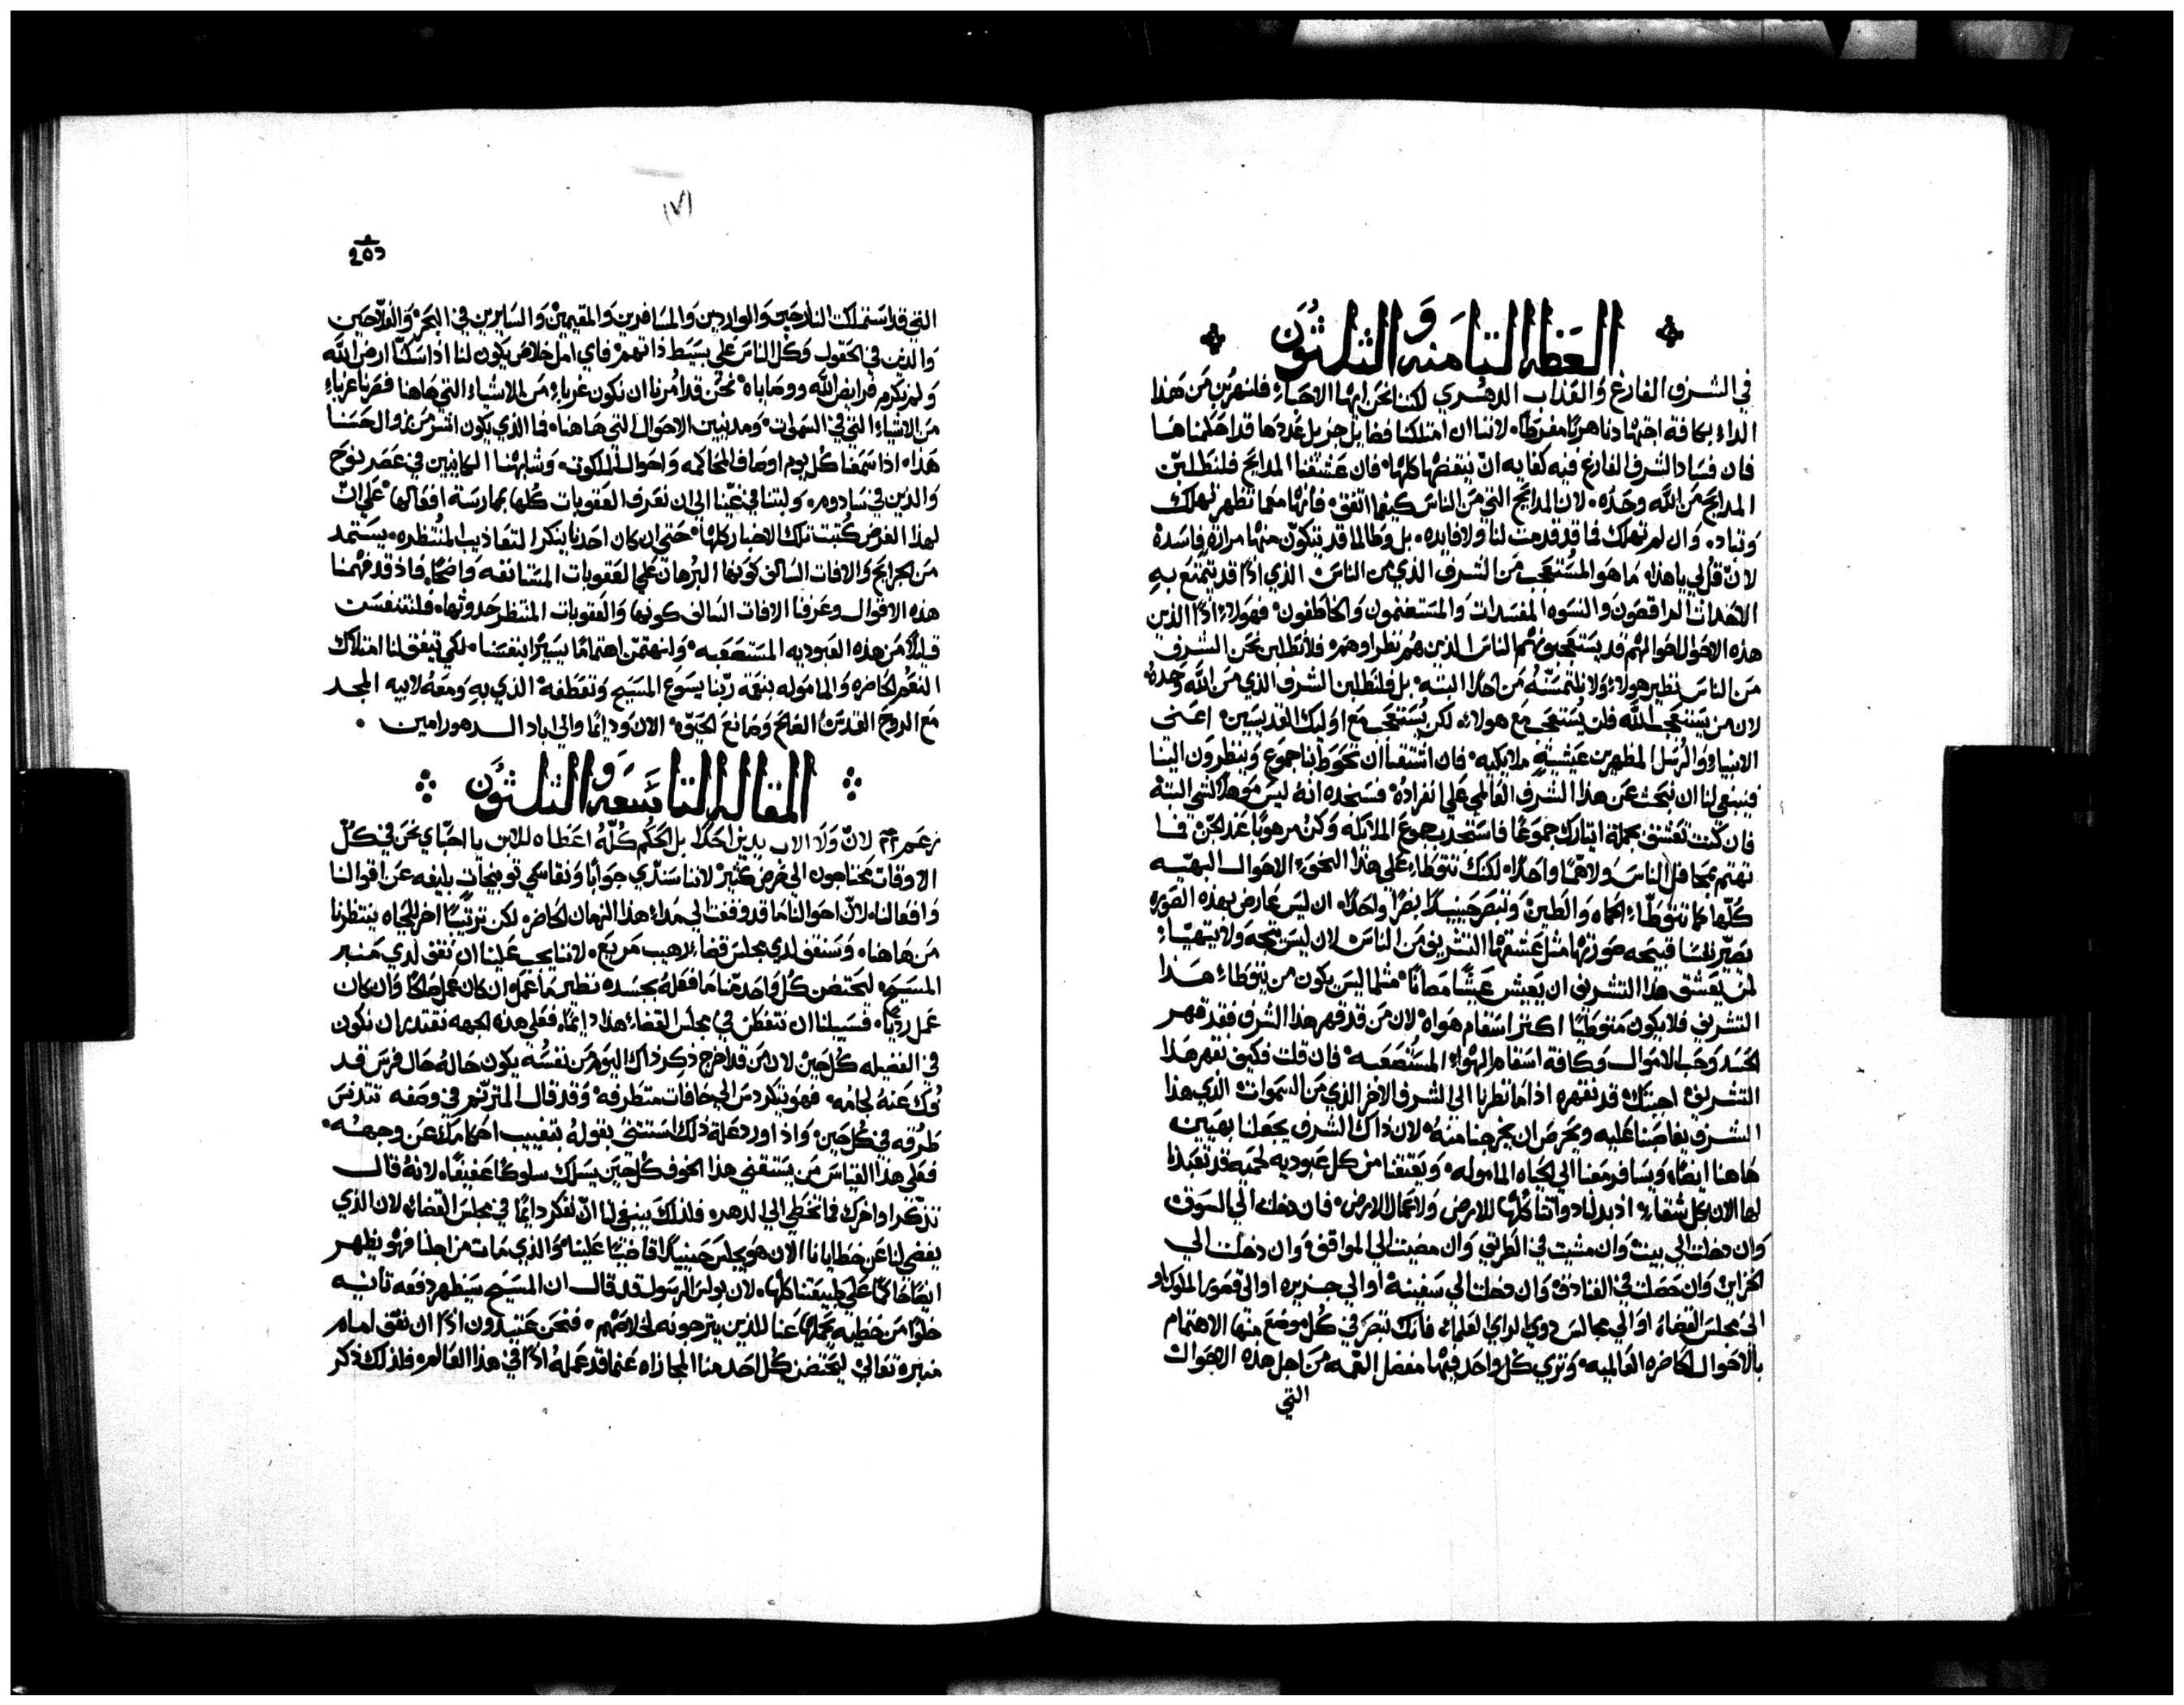 العظه الثامنه والثلثون
في الشرف الفارغ والعذاب الدهري لكننا نحن ايها الاحباء فلنهربن من هذا
الداء بكافة اجتهادنا هربًا مفرطًا. لاننا ان امتلكنا فضايل جزيل عددها قد احكمناها
فان فساد الشرف الفارغ فيه كفايه ان ينفضها كلها. فان عشقنا المدايح فلنطلبن
المدايح من الله وحده. لان المدايح التي من الناس كيفما اتفق. فانها معما تظهر تهلك
وتباد. وان لم تهلك فما قد قدمت لنا ولا فايده. بل وطالما قد يتكون منها مرارة فاسده
لان قل لي يا هذا. ما هو المستعجب من الشرف الذي من الناس الذي اذًا قد يتمتع به
الاحداث الراقصون والنسوه المفسدات والمستغنمون والخاطفون. فهولاء اذًا الذين
هذه الاحوال احوالهم قد يستعجبونهم الناس الذين هم نظراوهم. فلا نطلبن نحن الشرف
من الناس نظير هولاء ولا نلتمسه من احدًا البته. بل فلنطلبن الشرف الذي من الله وحده
لان من يستعجب الله فلن يستعجب مع هولاء. لكن يستعجب مع اوليك القديسين. اعني
الانبياء والرسل المظهرين عيشةٍ ملايكيه. فان اشتقنا ان تحوط بنا جموع وينظرون الينا
فينبغي لنا ان نبحث عن هذا الشرف العالمي علي انفراده. فسنجده انه ليس موهلًا لشي البتة
فان كنت تعشق بجملة ايثارك جموعًا فاستجذب جموع الملايكه وكن مرهوبًا عند الجن. فما
تهتم بمحافل الناس ولا همًا واحدًا. لكنك تتوطاء علي هذا النحو الاحوال البهيه
كلها كما تتوطاء الحماه والطين. وتبصر حينيذًا بصرًا واحدًا. ان ليس عارض بهذه الصوره
يصير نفسًا قبيحه صورتها مثل عشقها التشريف من الناس لان ليس يتجه ولا يتهياء
لمن يعشق هذا التشريف ان يعيش عيشًا مصانًا. مثلما ليس يكون من يتوطاء هذا
التشريف فلا يكون متوطيًا اكثر اسقام هواه. لان من قد قهر هذا الشرف فقد قهر
الحسد وحب الاموال وكافة اسقام الهواء المستصعبه. فان قلت فكيف نقهر هذا
التشريف. اجبتك قد نقهره اذا ما نظرنا الى الشرف الاخر الذي من السموات الذي هذا
الشرف يغاصبنا عليه ويحرص ان يخرجنا منه. لان ذاك الشرف يجعلنا بهيين
هاهنا ايضًا. ويسافر معنا الي الحياه الماموله. ويعتقنا من كل عبوديه لحميه قد تعبدنا
لها الان بكل شقاء. اذ بدلنا ذواتنا كلها للارض ولاعمال الارض. فان دخلت الي السوق
وان دخلت الي بيت وان مشيت في الطريق وان مضيت الي المواقف وان دخلت الي
الخزاين وان حصلت في الفنادق وان دخلت الي سفينة او الي جزيره او الى قصور الملوك او
الى مجلس القضاء او الي مجالس ذوي الراي العلماء. فانك تبصر في كل موضع منها الاهتمام
بالاحوال الحاضره العالميه. وتري كل واحد فيها مفضل الهمه من اجل هذه الاحوال
التي
(٧١
التي قد استملكت النازحين والواردين والمسافرين والمقيمين والسايرين في البحر والفلاحين
والذين في الحقول وكل الناس علي بسيط ذاتهم. فاي امل خلاص يكون لنا اذا سكنا ارض الله
ولم نكرم فرايض الله ووصاياه. نحن قد امرنا ان نكون غرباء من الاشياء التي هاهنا فصرنا غرباء
من الاشياء التي في السموات. ومدنيين الاحوال التي هاهنا. فما الذي يكون اشر من زوال حسنا
هذا. اذا سمعنا كل يوم اوصاف المحاكمه واحوال الملكوت. وشابهنا الكاينين في عصر نوح
والذين في سادوم. ولبثنا في غينا الى ان نعرف العقوبات كلها بممارسة افعالها. علي ان
لهذا الغرض كتبت تلك الاخبار كلها. حتى ان كان احدنا ينكر التعاذيب المنتظره. يستمد
من الجرايح والافات السالف كونها البرهان علي العقوبات المستانفه واضحًا. فاذ قد فهمنا
هذه الاقوال وعرفنا الافات السالف كونها والعقوبات المنتظر حدوثها. فلنتنفسن
قليلًا من هذه العبوديه المستصعبه. ولنهتمن اهتمامًا يسيرًا بنفسنا. لكي يتفق لنا امتلاك
النعم الحاضره والماموله بنعمة ربنا يسوع المسيح وتعطفه الذي به ومعه لابيه المجد
مع الروح القدس الصالح وصانع الحيوه. الان ودايمًا والي اباد الدهور امين .
المقاله التاسعه والثلثون
لان ولا الاب يدين احدًا بل الحكم كله اعطاه للابن يا احباي نحن في كل
الاوقات محتاجون الي فرض كثير لاننا سنودي جوابًا ونقاسي توبيخات بليغه عن اقوالنا
وافعالنا. لان احوالنا ما قد وقفت الي مداء هذا الزمان الحاضر لكن ترتيبًا اخر للحياه ينتظرنا
من هاهنا. وسنقف لدي مجلس قضاء رهيب مريع. لاننا يجب علينا ان نقف لدي منبر
المسيح. ليحتضن كل واحد منا ما فعله بجسده نظير ما عمل وان كان عمل صالحًا وان كان
عمل رديًا. فسبيلنا ان نتفطن في مجلس القضاء هذا دايمًا. فعلي هذه الجهه نقتدر ان نكون
في الفضيله كل حين. لان من قد اخرج ذكر ذاك اليوم من نفسه يكون حاله حال فرس قد
فك عنه لجامه. فهو يتكردس الي حافات متطرفه. وقد قال المترنم في وصفه تتدنس
طرقه في كل حين. واذ اورد علة ذلك استثنى بقوله بتغييب احكامك عن وجهه.
فعلي هذا القياس من يستقني هذا الخوف كل حين يسلك سلوكًا عفيفًا. لانه قال
تذكر اواخرك فما تخطي الي الدهر. فلذلك ينبغي لنا ان نفكر دايمًا في مجلس القضاء. لان الذي
يفضي لنا عن خطايانا الان هو يجلس حينيذًا قاضيًا علينا. والذي مات من اجلنا فهو يظهر
ايضًا حاكمًا علي طبيعتنا كلها. لان بولس الرسول قد قال ان المسيح سيظهر دفعه ثانيه
خلوًا من خطيه يحملها عنا للذين يترجونه لخلاصهم. فنحن عتيدون اذًا ان نقف امام
منبره تعالي ليحتضن كل احد منا المجازاه عما قد عمله اذًا في هذا العالم. فلذلك ذكر